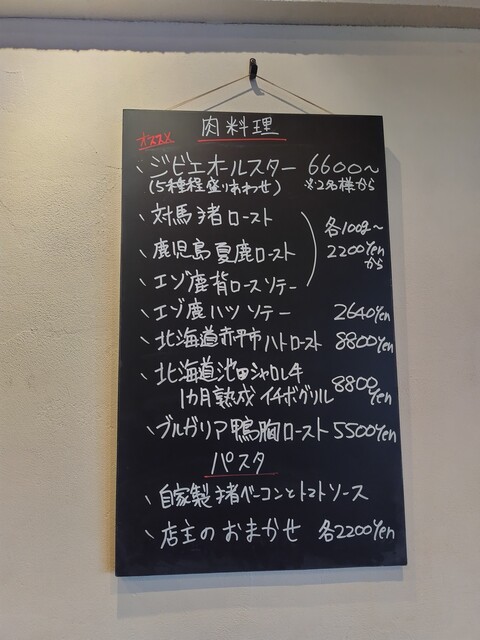 肉料理
オススメ
、ジビエオールスター 6600〜
(5種程盛りあわせ) ※2名様から
、対馬猪ロースト
、鹿児島夏鹿ロースト
、エゾ鹿背ロースソテー
各100g〜
2200yen
から
、エゾ鹿ハツソテー 2640yen
、北海道赤平市ハトロースト 8800yen
、北海道池田シャロレ牛
1カ月熟成イチボグリル 8800yen
、ブルガリア鴨胸ロースト 5500yen
パスタ
、自家製猪ベーコンとトマトソース
、店主のおまかせ 各2200yen